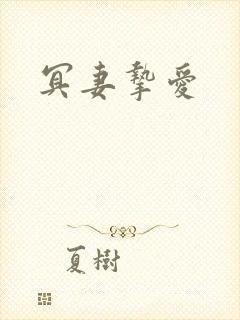 冥妻摯愛
夏樹